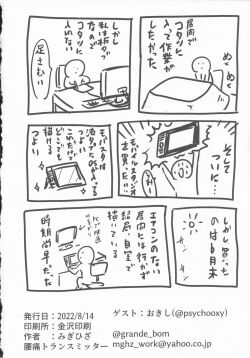 ぬくぬく
居間で
コタツに
入って作業が
したかった。
しかし
私は板タブ
なので
コタツに
入れない
足さむい
そして
ついに…
モバイルスタジオ
を買った!!
モバスタは
液タブとOSが入ってる
これだけで
どこでも
描ける
つよい
つよい
しかし買った
のは6月末
エアコンのない
居間には行かず
結局、自室で
描いている
時期尚早だった
発行日：2022/8/14
ゲスト：おきし(@psychooxy)
印刷所：金沢印刷
作者　：みぎひざ
@grande_bom
腰痛トランスミッター
mghz_work@yahoo.co.jp